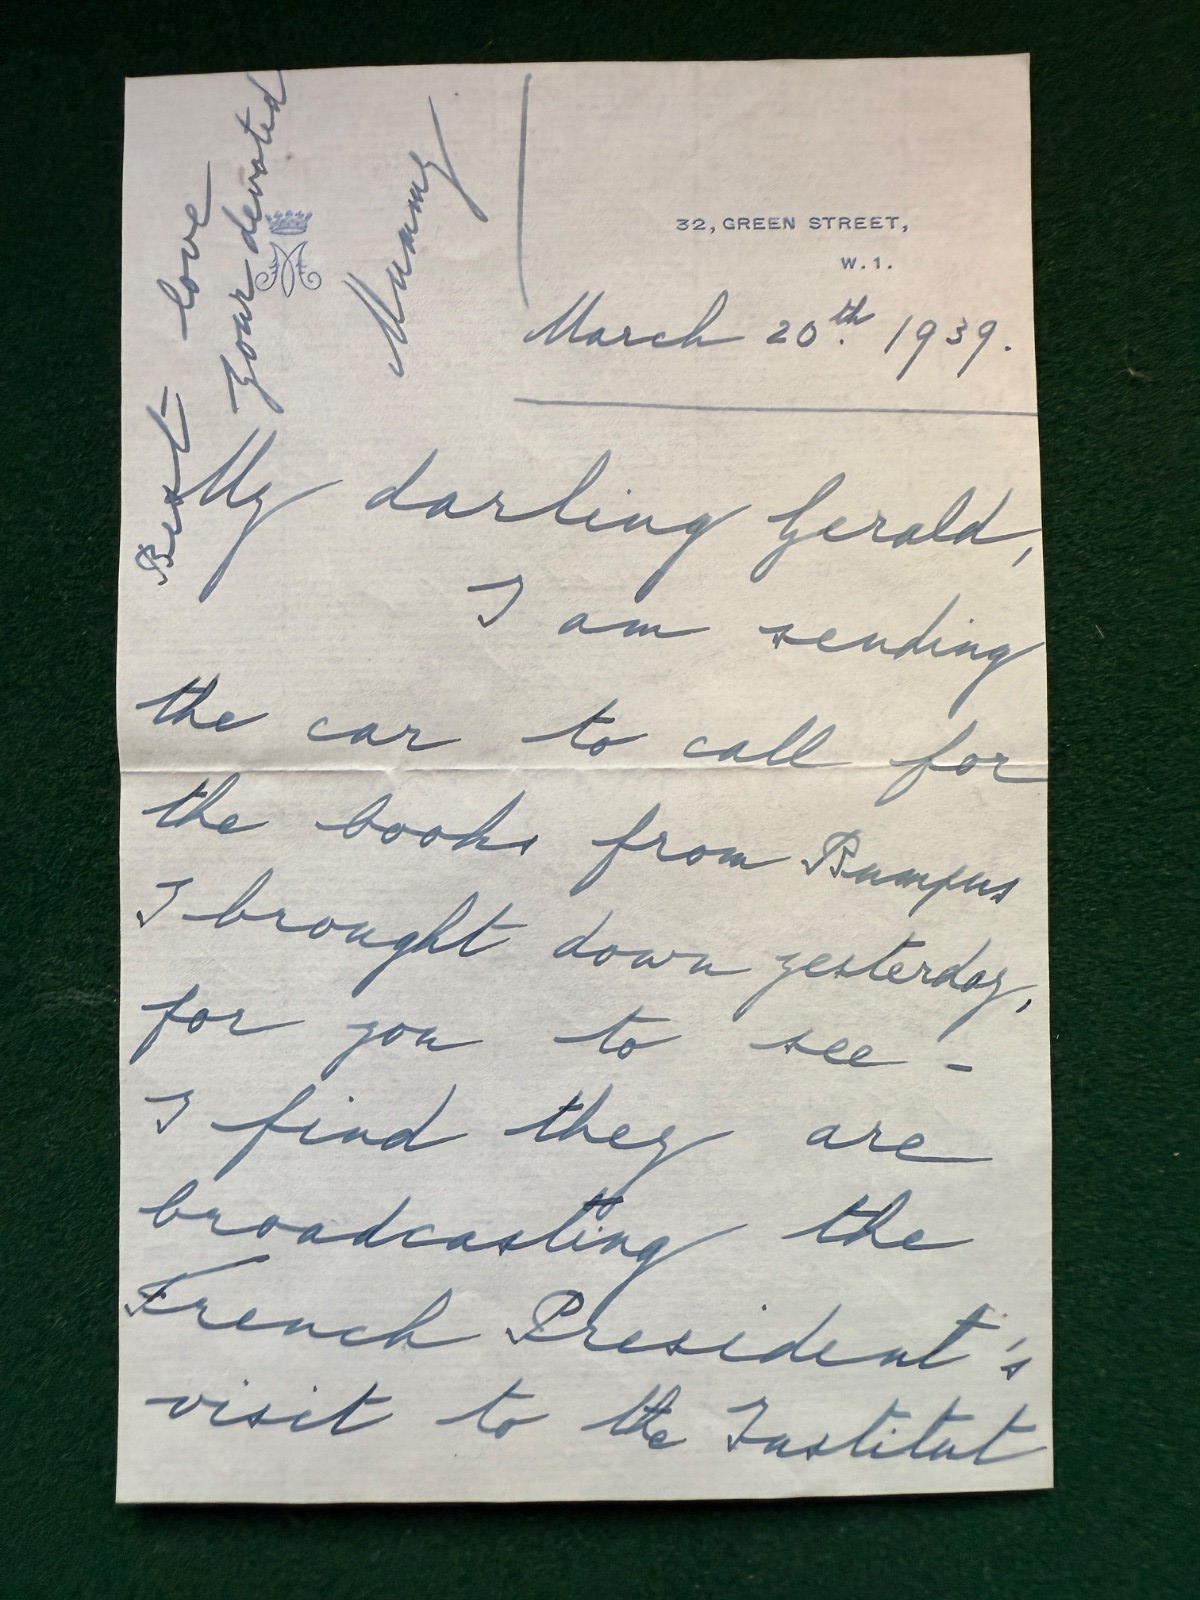 32, GREEN STREET,
W.1.
March 20th. 1939.
My darling Gerald,
I am sending
the car to call for
the books from Bumpus
I brought down yesterday,
for you to see -
I find they are
broadcasting the
French President's
visit to the Institut
Best love
Your devoted
Mummy